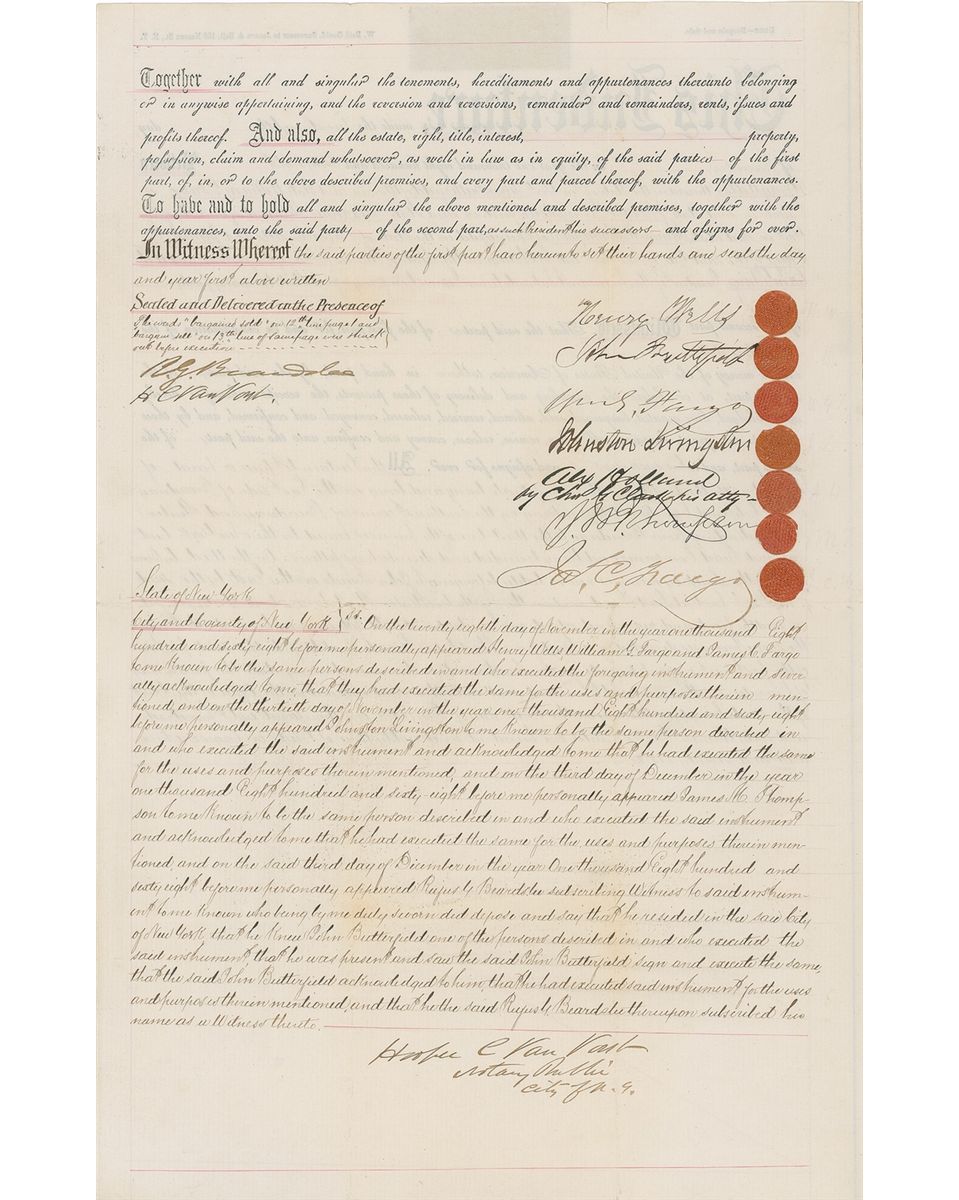 Together with all and singular the tenements, hereditaments and appurtenances thereunto belonging
or in anywise appertaining, and the reversion and reversions, remainder and remainders, rents, issues and
profits thereof. And also, all the estate, right, title, interest, property,
possession, claim and demand whatsoever, as well in law as in equity, of the said parties of the first
part, of, in, or to the above described premises, and every part and parcel thereof, with the appurtenances.
To have and to hold all and singular the above mentioned and described premises, together with the
appurtenances, unto the said party of the second part, as such President his successors and assigns for ever.
In Witness Whereof the said parties of the first part have hereunto set their hands and seals the day
and year first above written
Sealed and Delivered in the Presence of
The words "bargained sold" on 12th line page 1 and
bargain sell" on 13th line of same page were struck
out before execution
R. G. Beardslee
H C Van Vorst.
Henry Wells
John Butterfield
Wm G. Fargo
Johnston Livingston
Alex Holland
by Chas G Clark his atty
J. M. Thompson
Jas. C. Fargo
State of New York
City and County of New York } ss. On the twenty eighth day of November in the year one thousand Eight
hundred and sixty eight before me personally appeared Henry Wells William G. Fargo and James C. Fargo
to me Known to be the same persons described in and who executed the foregoing instrument and sever-
ally acknowledged to me that they had executed the same for the uses and purposes therein men-
tioned, and on the thirtieth day of November in the year one thousand Eight hundred and sixty eight
before me personally appeared Johnston Livingston to me Known to be the same person described in
and who executed the said instrument and acknowledged to me that he had executed the same
for the uses and purposes therein mentioned, and on the third day of December in the year
one thousand Eight hundred and sixty-eight before me personally appeared James M. Thomp-
son to me Known to be the same person described in and who executed the said instrument
and acknowledged to me that he had executed the same for the uses and purposes therein men-
tioned, and on the said third day of December in the year One thousand Eight hundred and
sixty eight before me personally appeared Rufus G Beardslee subscribing Witness to said instrum-
ent to me Known who being by me duly sworn did depose and say that he resided in the said City
of New York that he Knew John Butterfield one of the persons described in and who executed the
said instrument that he was present and saw the said John Butterfield sign and execute the same,
that the said John Butterfield acknowledged to him, that he had executed said instrument for the uses
and purposes therein mentioned, and that he the said Rufus G Beardslee thereupon subscribed his
name as a Witness thereto.
Hooper C Van Vorst
Notary Public
City of N. Y.